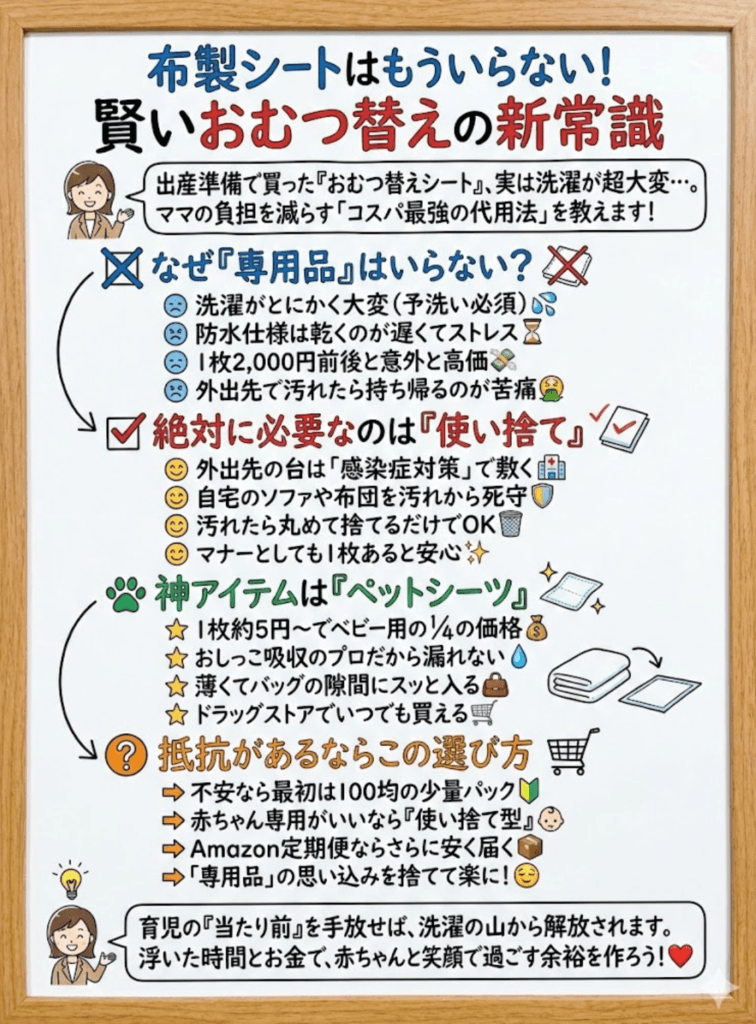 布製シートはもういらない!
賢いおむつ替えの新常識
出産準備で買った『おむつ替えシート』、実は洗濯が超大変…。
ママの負担を減らす「コスパ最強の代用法」を教えます!
なぜ『専用品』はいらない?
洗濯がとにかく大変(予洗い必須)
防水仕様は乾くのが遅くてストレス
1枚2,000円前後と意外と高価
外出先で汚れたら持ち帰るのが苦痛
絶対に必要なのは『使い捨て』
外出先の台は「感染症対策」で敷く
自宅のソファや布団を汚れから死守
汚れたら丸めて捨てるだけでOK
マナーとしても1枚あると安心
神アイテムは『ペットシーツ』
1枚約5円〜でベビー用の1/4の価格
おしっこ吸収のプロだから漏れない
薄くてバッグの隙間にスッと入る
ドラッグストアでいつでも買える
抵抗があるならこの選び方
不安なら最初は100均の少量パック
赤ちゃん専用がいいなら『使い捨て型』
Amazon定期便ならさらに安く届く
「専用品」の思い込みを捨てて楽に!
育児の『当たり前』を手放せば、洗濯の山から解放されます。
浮いた時間とお金で、赤ちゃんと笑顔で過ごす余裕を作ろう!